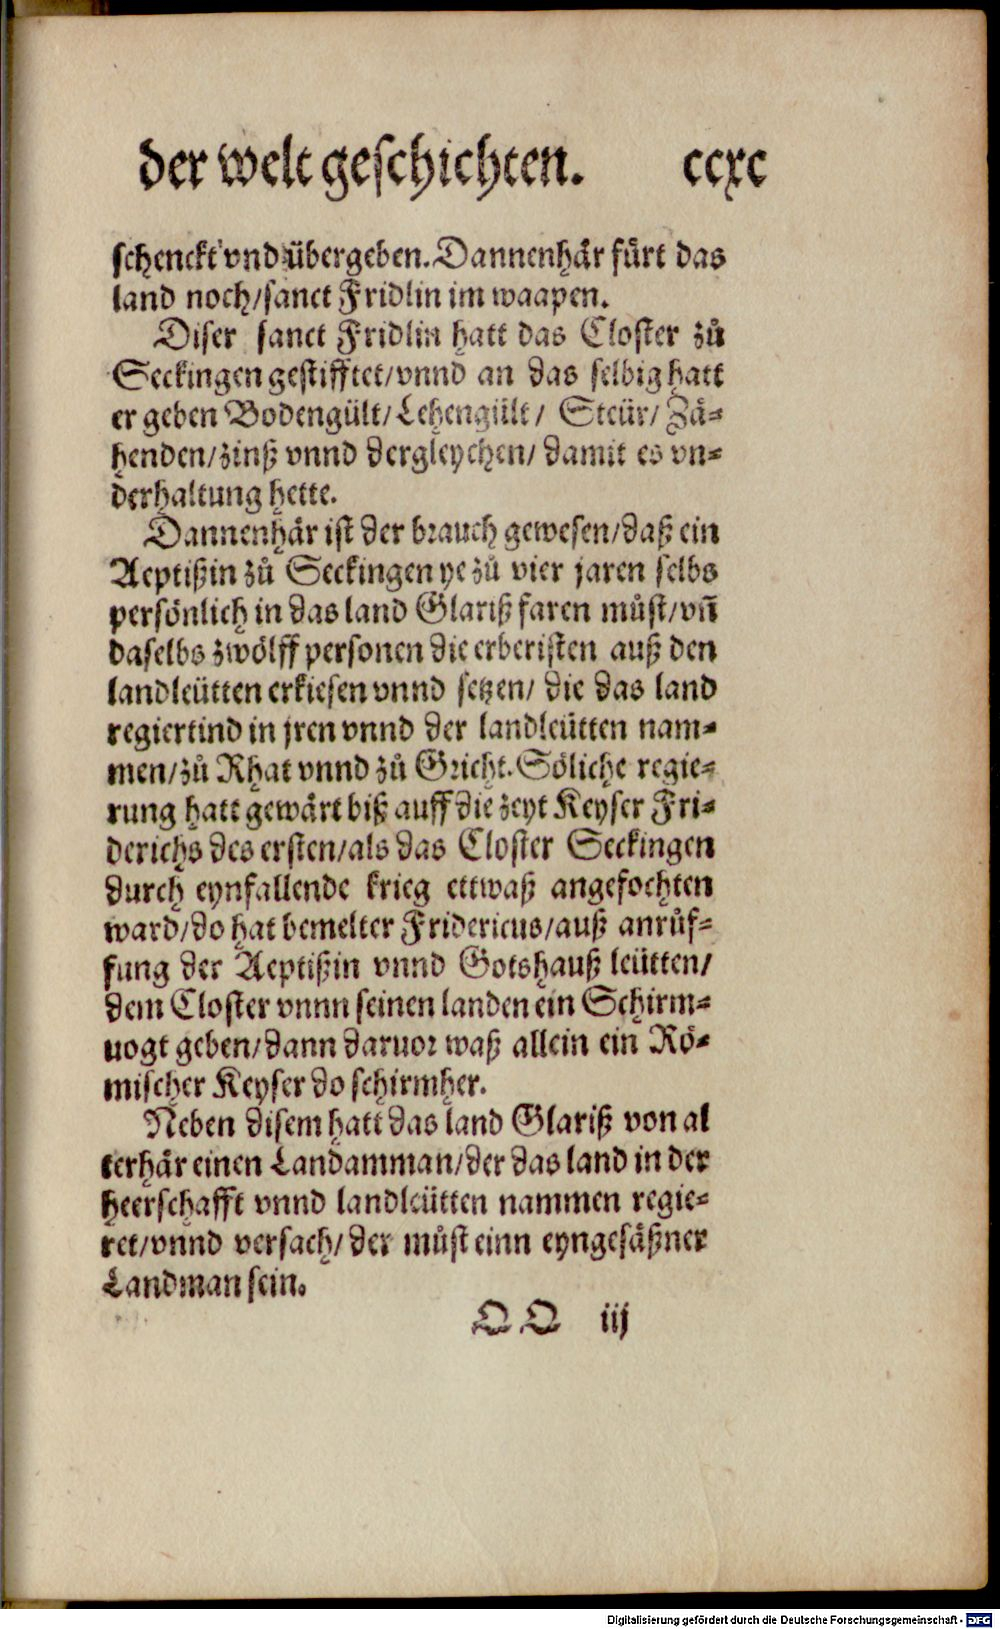 der welt geschichten. ccxc
schenckt vnd übergeben. Dannenhår fürt das
land noch/sanct Fridlin im waapen.
Diser sanct Fridlin hatt das Closter zů
Seckingen gestifftet/vnnd an das selbig hatt
er geben Bodengült/Lehengült/ Steür/ Zä-
henden/zinß vnnd dergleychen/ damit es vn-
derhaltung hette.
Dannenhår ist der brauch gewesen/daß ein
Aeptißin zů Seckingen ye zů vier jaren selbs
persönlich in das land Glariß faren můst/vñ
daselbs zwölff personen die erberisten auß den
landleütten erkiesen vnnd setzen/ die das land
regiertind in jren vnnd der landleütten nam-
men/zů Rhat vnnd zů Gricht. Söliche regie-
rung hatt gewårt biß auff die zeyt Keyser Fri-
derichs des ersten/als das Closter Seckingen
durch eynfallende krieg ettwaß angefochten
ward/do hat bemelter Fridericus/auß anrůf-
fung der Aeptißin vnnd Gotshauß leütten/
dem Closter vnnn seinen landen ein Schirm-
uogt geben/dann daruor waß allein ein Rö-
mischer Keyser do schirmher.
Neben disem hatt das land Glariß von al
terhår einen Landamman/der das land in der
heerschafft vnnd landleütten nammen regie-
ret/vnnd versach/ der můst einn eyngesäßner
Landman sein.
QQ iij
Digitalisierung gefördert durch die Deutsche Forschungsgemeinschaft - DFG